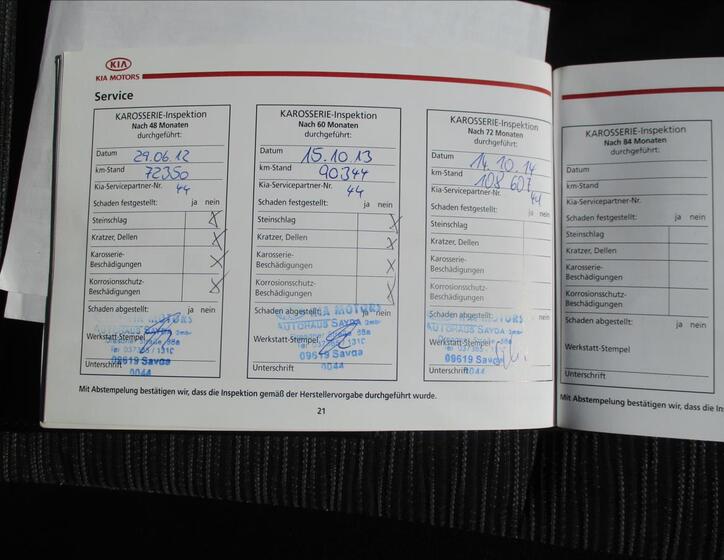 KIA
KIA MOTORS
Service
KAROSSERIE-Inspektion
Nach 48 Monaten
durchgeführt:
Datum 29.06.12
km-Stand 72350
Kia-Servicepartner-Nr. 44
Schaden festgestellt: ja nein
Steinschlag X
Kratzer, Dellen X
Karosserie-
Beschädigungen X
Korrosionsschutz-
Beschädigungen X
Schaden abgestellt: ja nein
MOTORS
AUTOHAUS SAYDA
Werkstatt-Stempel
09619 Sayda
Unterschrift 0044
KAROSSERIE-Inspektion
Nach 60 Monaten
durchgeführt:
Datum 15.10.13
km-Stand 90344
Kia-Servicepartner-Nr. 44
Schaden festgestellt: ja nein
Steinschlag X
Kratzer, Dellen X
Karosserie-
Beschädigungen X
Korrosionsschutz-
Beschädigungen X
Schaden abgestellt:
KIA MOTORS
AUTOHAUS SAYDA
Werkstatt-Stempel
09619 Sayda
Unterschrift 0044
KAROSSERIE-Inspektion
Nach 72 Monaten
durchgeführt:
Datum 14.10.14
km-Stand 108 607
Kia-Servicepartner-Nr. 44
Schaden festgestellt: ja nein
Steinschlag
Kratzer, Dellen
Karosserie-
Beschädigungen
Korrosionsschutz-
Beschädigungen
Schaden abgestellt: ja nein
MOTORS
AUTOHAUS SAYDA
Werkstatt-Stempel
09619 Sayda
Unterschrift 0044
Mit Abstempelung bestätigen wir, dass die Inspektion gemäß der Herstellervorgabe durchgeführt wurde.
21
KAROSSERIE-Inspektion
Nach 84 Monaten
durchgeführt:
Datum
km-Stand
Kia-Servicepartner-Nr.
Schaden festgestellt: ja nein
Steinschlag
Kratzer, Dellen
Karosserie-
Beschädigungen
Korrosionsschutz-
Beschädigungen
Schaden abgestellt: ja nein
Werkstatt-Stempel
Unterschrift
Mit Abstempelung bestätigen wir, dass die In